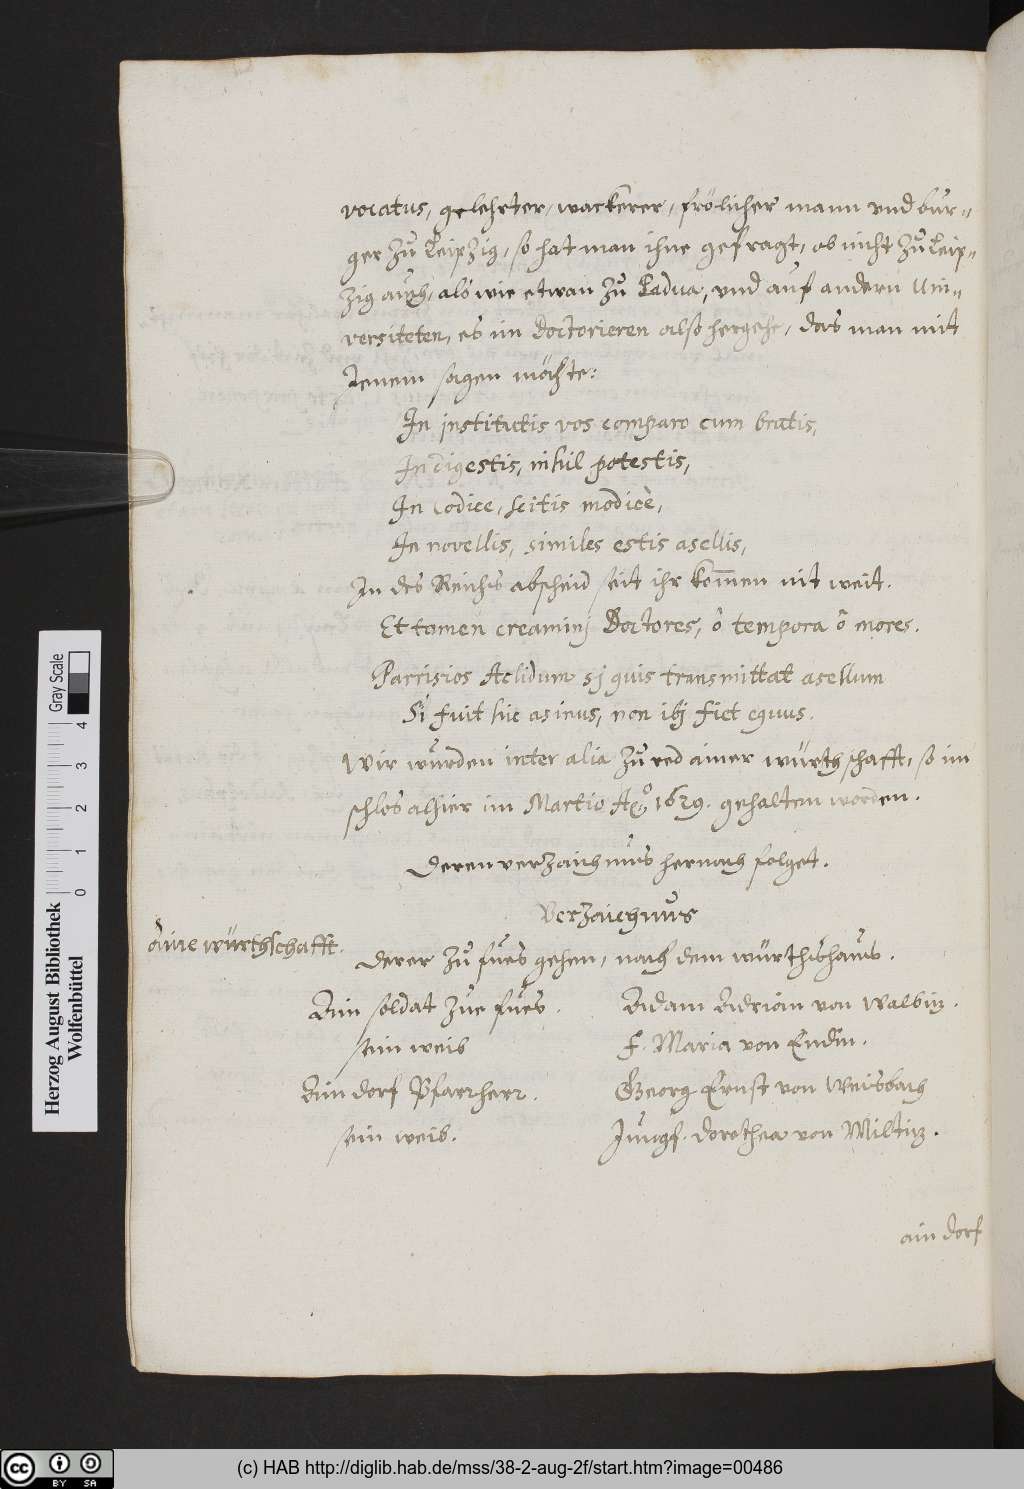 vocatus, gelehrter, wackerer, frölicher mann und bur-
ger zu Leipzig, so hat man ihne gefragt, ob nicht zu Leip-
zig auch, als wie etwan zu Padua, und auf andern Uni-
versiteten, es im doctorieren also hergehe, das man mit
Jenem sagen möchte:
In institutis vos comparo cum brutis,
In digestis, nihil potestis,
In Codice, scitis modicè,
In novellis, similes estis asellis,
In des Reichs abscheid seit ihr kommen nit weit.
Et tamen creaminj Doctores, ô tempora ô mores.
Parrisios stolidum sj quis transmittat asellum
Si fuit hic asinus, non ibj fiet equus.
Wir wurden inter alia zu red ainer würthschafft, so im
schlos alhier im Martio Ao. 1629. gehalten worden.
Deren verzaichnus hernach folget.
Verzaichnus
Aine würthschafft.
Derer zu fues gehen, nach dem würthshaus.
Ain soldat zue fues. Adam Adrian von Walbitz.
sein weib F. Maria von Endin.
Ain dorf Pfarrherr. Georg Ernst von Weisbach
sein weib. Jungf. Dorothea von Miltitz.
ain dorf
Herzog August Bibliothek
Wolfenbüttel
Gray Scale
0 1 2 3 4
cc BY SA
(c) HAB http://diglib.hab.de/mss/38-2-aug-2f/start.htm?image=00486